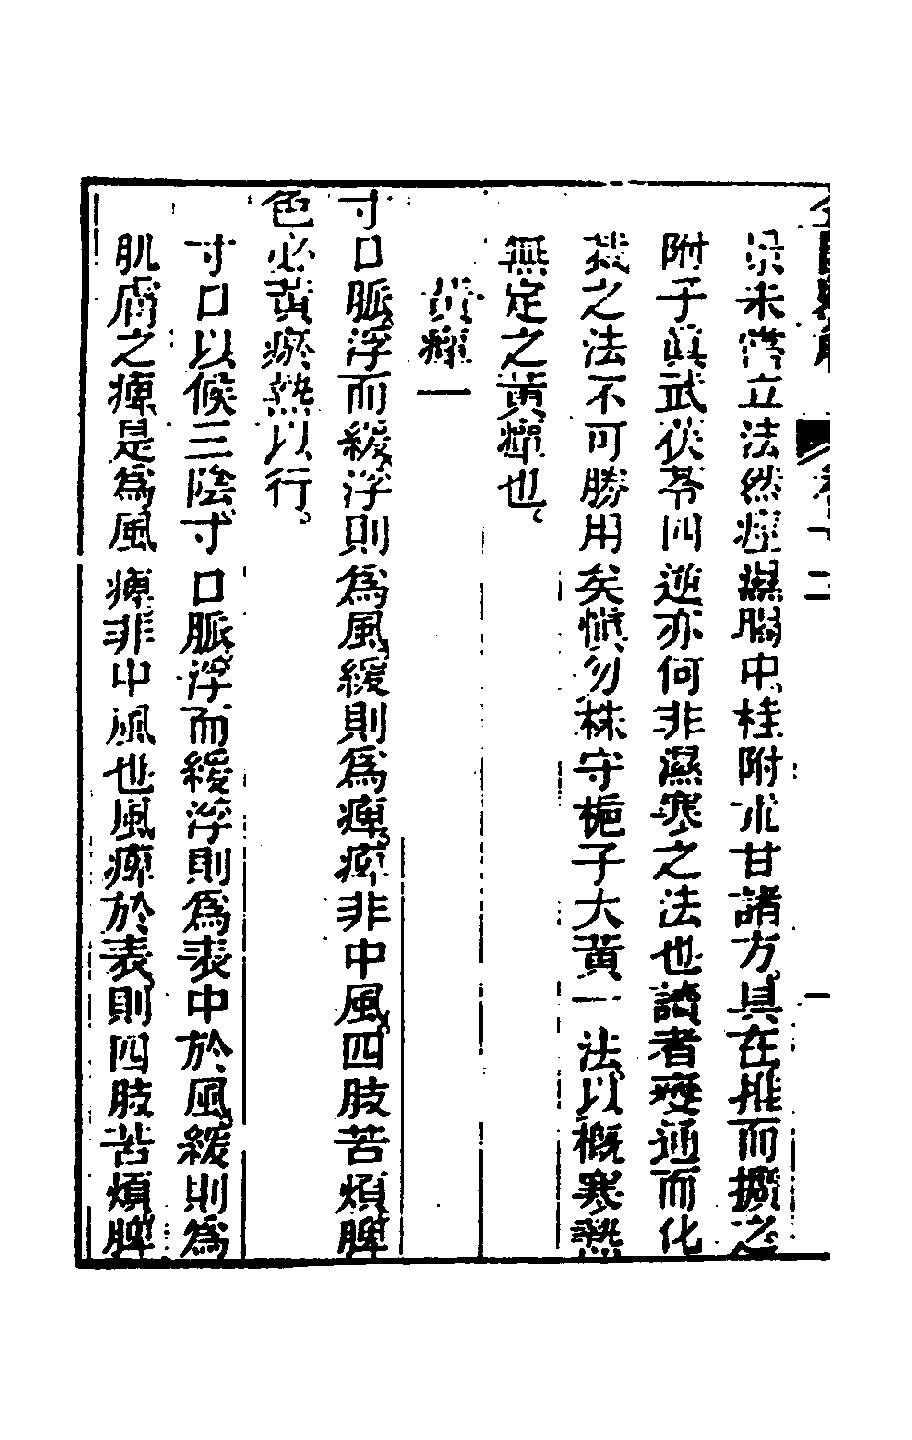 景未嘗立法然痙濕暍中桂附朮甘諸方具在推而擴之
附子眞武茯苓四逆亦何非濕寒之法也讀者變通而化
裁之法不可勝用矣愼勿株守梔子大黃一法以概寒熱
無定之黃癉也
黃癉一
寸口脈浮而緩浮則爲風緩則爲痺痺非中風四肢苦煩脾
色必黃瘀熱以行
寸口以候三陰寸口脈浮而緩浮則爲表中於風緩則爲
肌膚之痺是爲風痺非中風也風痺於表則四肢苦煩脾